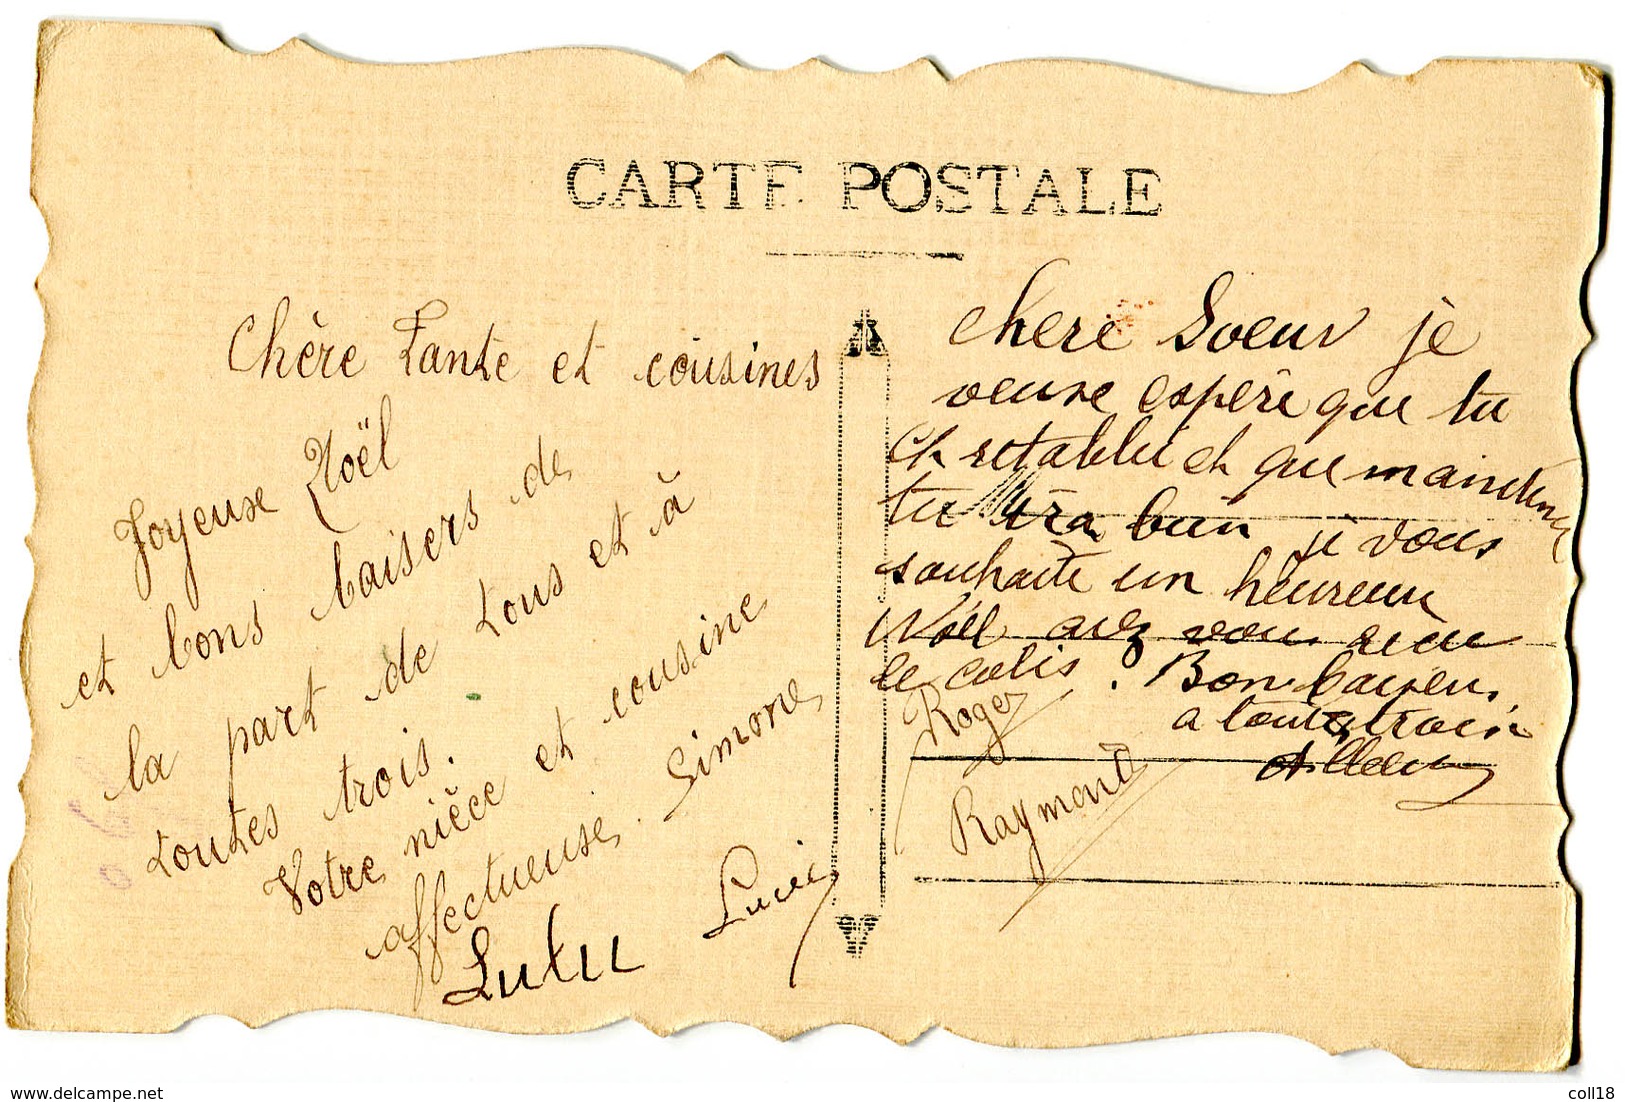 CARTE POSTALE
Chère Tante et cousines
Joyeuse Noël
et bons baisers de
la part de tous et à
toutes trois.
Votre nièce et cousine
affectueuse. Simone
Lulu Lucie
chere Soeur je
veuxe espére que tu
et retablie et que maintena
tu ira bien je vous
souhaite un heureux
Noël avez vous reçu
le colis. Bon baisers
a toute trois
Roger
Raymond
delcampe.net
coll18